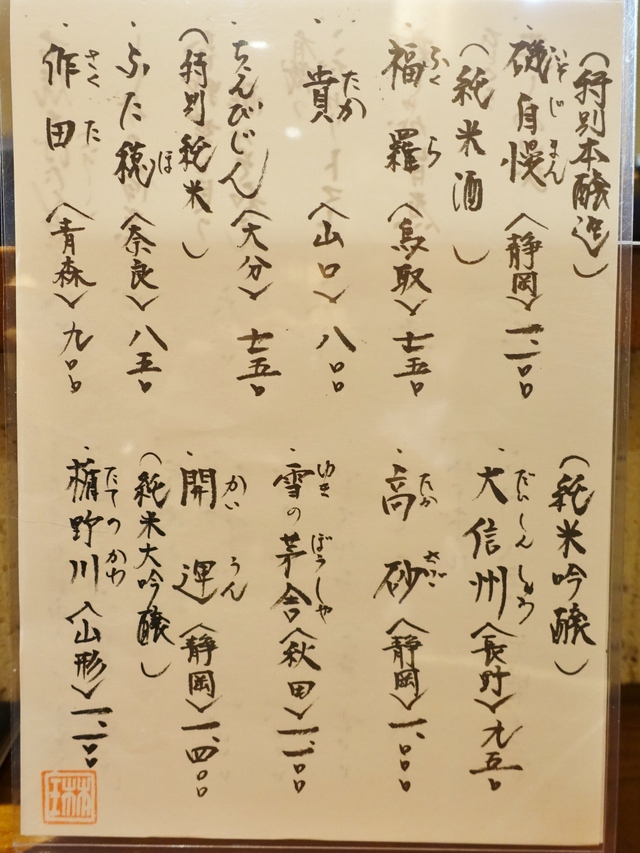 （特別本醸造）
いそじまん
・磯自慢〈静岡〉一、一〇〇
（純米酒）
ふくら
・福羅〈鳥取〉七五〇
たか
・貴〈山口〉八〇〇
・ちえびじん〈大分〉七五〇
（特別純米）
ほ
・ふた穂〈奈良〉八五〇
さくた
・作田〈青森〉九〇〇
（純米吟醸）
だいしんしゅう
・大信州〈長野〉九五〇
たかさご
・高砂〈静岡〉一、〇〇〇
ゆきぼうしゃ
・雪の茅舎〈秋田〉一、一〇〇
かいうん
・開運〈静岡〉一、四〇〇
（純米大吟醸）
たてのかわ
・楯野川〈山形〉一、一〇〇